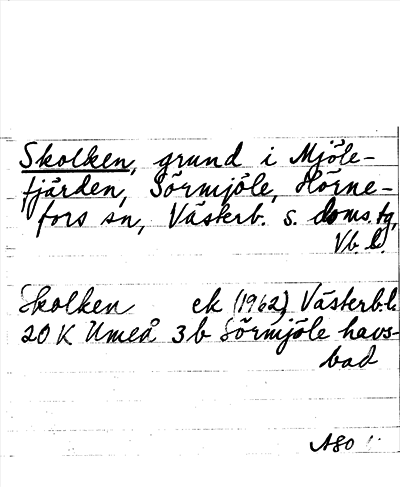 Skolken, grund i Mjöle-
fjärden, Sörmjöle, Hörne-
fors sn, Västerb. s. doms.tg,
Vb. l.
Skolken ek (1962) Västerb.l.
20 K Umeå 3 b Sörmjöle havs-
bad